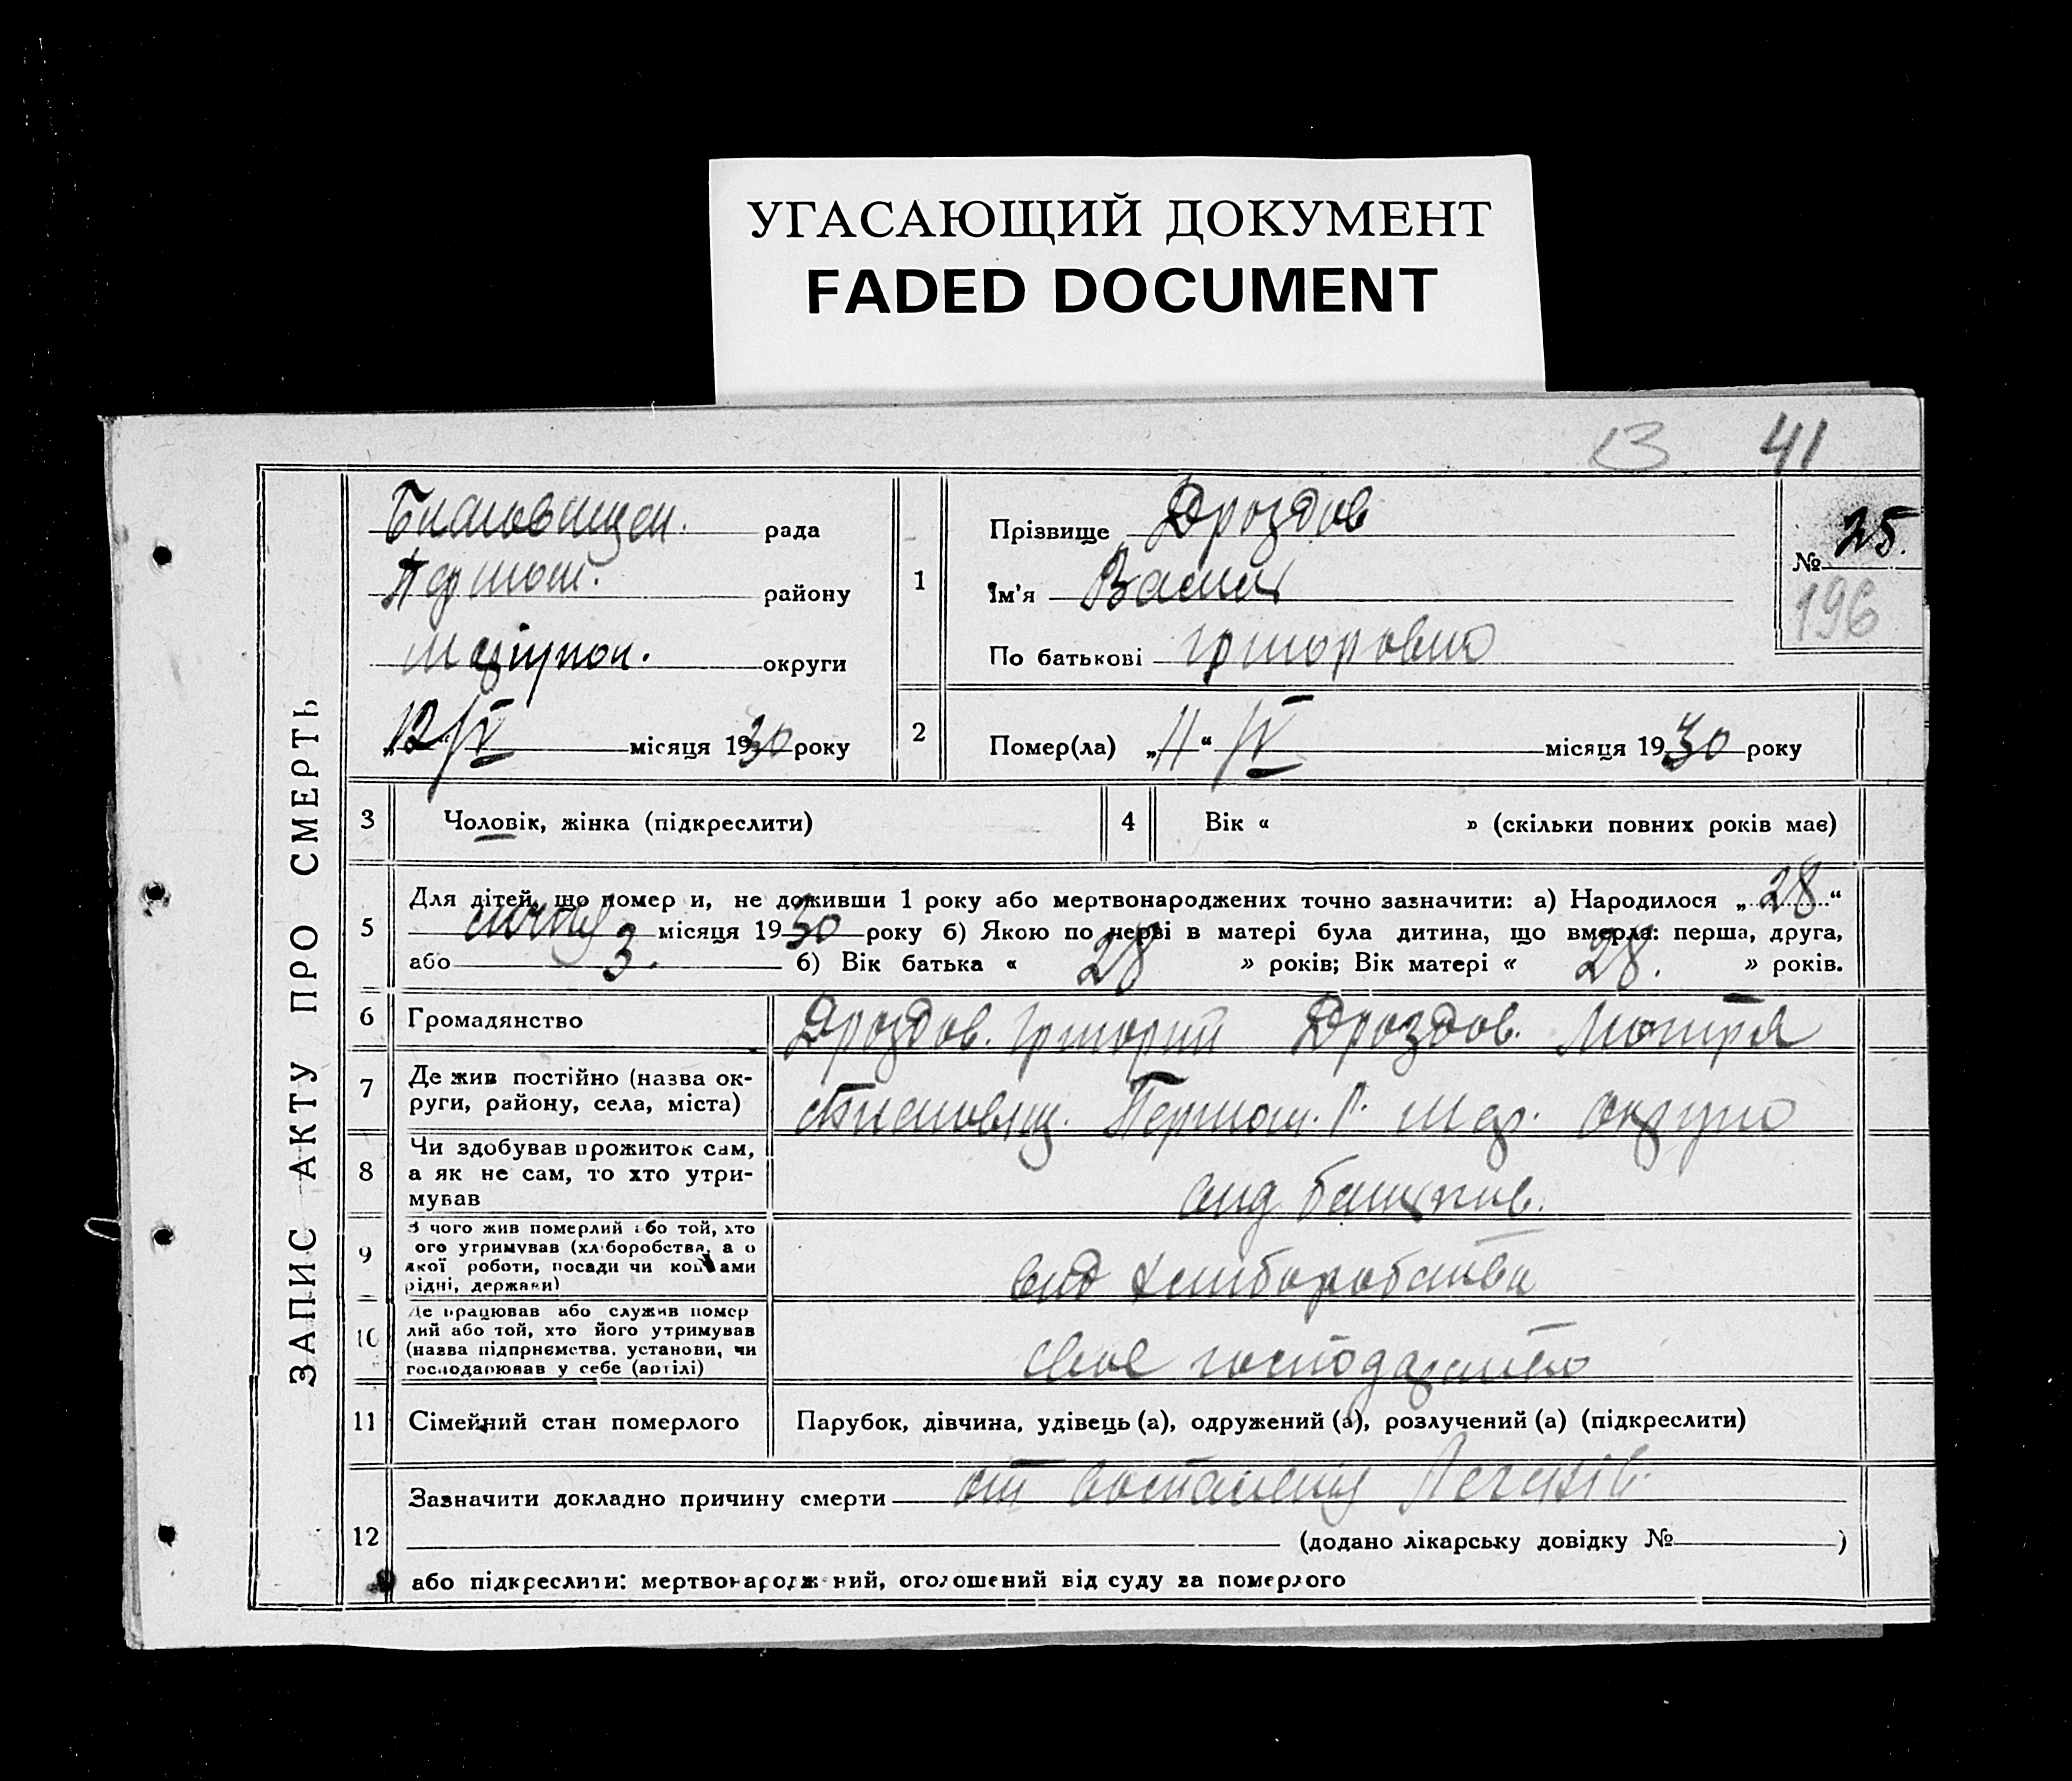 УГАСАЮЩИЙ ДОКУМЕНТ
FADED DOCUMENT
13 41
ЗАПИС АКТУ ПРО СМЕРТЬ
рада
району
округи
12/IV місяця 1930 року
1
Прізвище Дроздов
Ім'я Васил
По батькові
№ 25.
196
2
Помер(ла) „11“ IV місяця 1930 року
3 Чоловік, жінка (підкреслити)
4 Вік « » (скільки повних років має)
5 Для дітей, що помер и, не доживши 1 року або мертвонароджених точно зазначити: а) Народилося „28“
січня місяця 1930 року б) Якою по черзі в матері була дитина, що вмерла: перша, друга,
або 3. б) Вік батька « 28 » років; Вік матері « 28. » років.
6 Громадянство Дроздов. Григорий Дроздов. Мотря
7 Де жив постійно (назва ок-
руги, району, села, міста)
8 Чи здобував прожиток сам,
а як не сам, то хто утри-
мував
9 З чого жив померлий або той, хто
ого утримував (хліборобства, а о
якої роботи, посади чи коштами
рідні, держави)
10 Де працював або служив помер
лий або той, хто його утримував
(назва підприємства, установи, чи
господарював у себе (артілі)
свое господарство
11 Сімейний стан померлого Парубок, дівчина, удівець (а), одружений (а), розлучений (а) (підкреслити)
12 Зазначити докладно причину смерти от
(додано лікарську довідку № )
або підкреслити: мертвонароджений, оголошений від суду за померлого